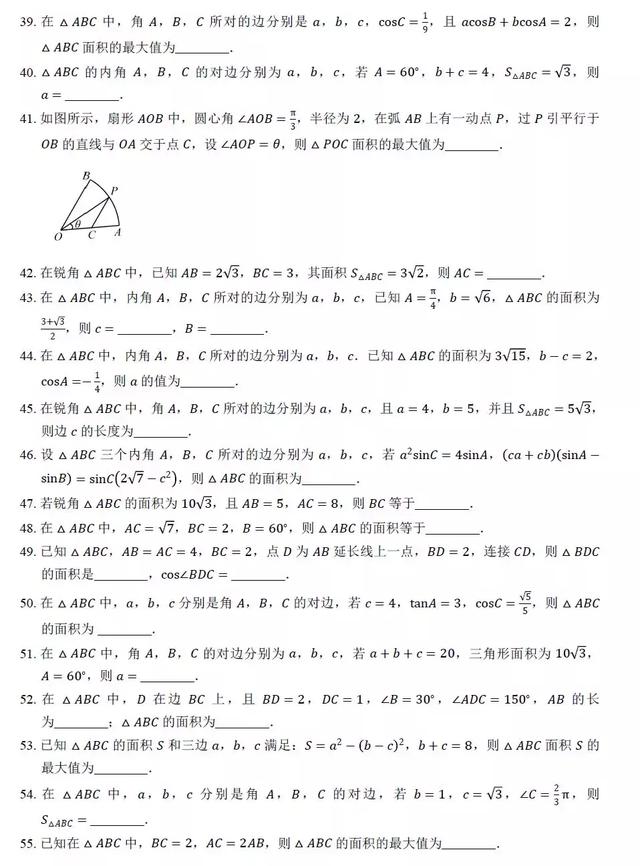 39. 在 △ABC 中，角 A，B，C 所对的边分别是 a，b，c，cosC=1/9，且 acosB+bcosA=2，则
△ABC 面积的最大值为________.
40. △ABC 的内角 A，B，C 的对边分别为 a，b，c，若 A=60°，b+c=4，S△ABC=√3，则
a=________.
41. 如图所示，扇形 AOB 中，圆心角 ∠AOB=π/3，半径为 2，在弧 AB 上有一动点 P，过 P 引平行于
OB 的直线与 OA 交于点 C，设 ∠AOP=θ，则 △POC 面积的最大值为________.
B
P
θ
O C A
42. 在锐角 △ABC 中，已知 AB=2√3，BC=3，其面积 S△ABC=3√2，则 AC=________.
43. 在 △ABC 中，内角 A，B，C 所对的边分别为 a，b，c，已知 A=π/4，b=√6，△ABC 的面积为
(3+√3)/2，则 c=________，B=________.
44. 在 △ABC 中，内角 A，B，C 所对的边分别为 a，b，c．已知 △ABC 的面积为 3√15，b−c=2，
cosA=−1/4，则 a 的值为________.
45. 在锐角 △ABC 中，角 A，B，C 所对的边分别为 a，b，c，且 a=4，b=5，并且 S△ABC=5√3，
则边 c 的长度为________.
46. 设 △ABC 三个内角 A，B，C 所对的边分别为 a，b，c，若 a²sinC=4sinA，(ca+cb)(sinA−
sinB)=sinC(2√7−c²)，则 △ABC 的面积为________.
47. 若锐角 △ABC 的面积为 10√3，且 AB=5，AC=8，则 BC 等于________.
48. 在 △ABC 中，AC=√7，BC=2，B=60°，则 △ABC 的面积等于________.
49. 已知 △ABC，AB=AC=4，BC=2，点 D 为 AB 延长线上一点，BD=2，连接 CD，则 △BDC
的面积是________，cos∠BDC=________.
50. 在 △ABC 中，a，b，c 分别是角 A，B，C 的对边，若 c=4，tanA=3，cosC=√5/5，则 △ABC
的面积为 ________.
51. 在 △ABC 中，角 A，B，C 的对边分别为 a，b，c，若 a+b+c=20，三角形面积为 10√3，
A=60°，则 a=________.
52. 在 △ABC 中，D 在边 BC 上，且 BD=2，DC=1，∠B=30°，∠ADC=150°，AB 的长
为________；△ABC 的面积为________.
53. 已知 △ABC 的面积 S 和三边 a，b，c 满足：S=a²−(b−c)²，b+c=8，则 △ABC 面积 S 的
最大值为________.
54. 在 △ABC 中，a，b，c 分别是角 A，B，C 的对边，若 b=1，c=√3，∠C=2/3π，则
S△ABC=________.
55. 已知在 △ABC 中，BC=2，AC=2AB，则 △ABC 的面积的最大值为________.